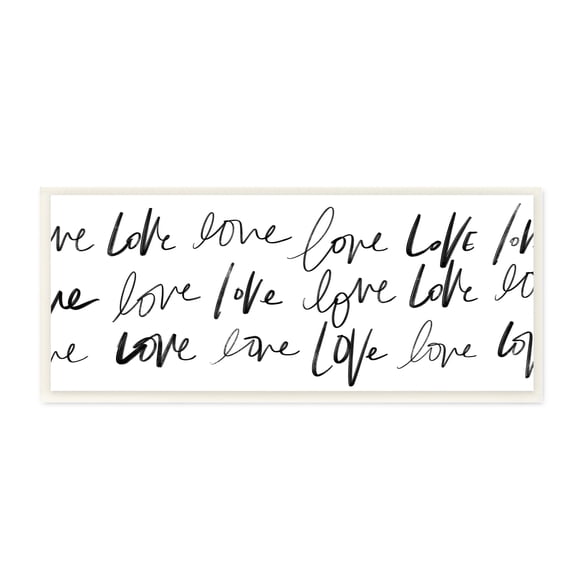 ve Love love love LOVE lov
ve love love love Love lo
ve Love love LOVe love Lov